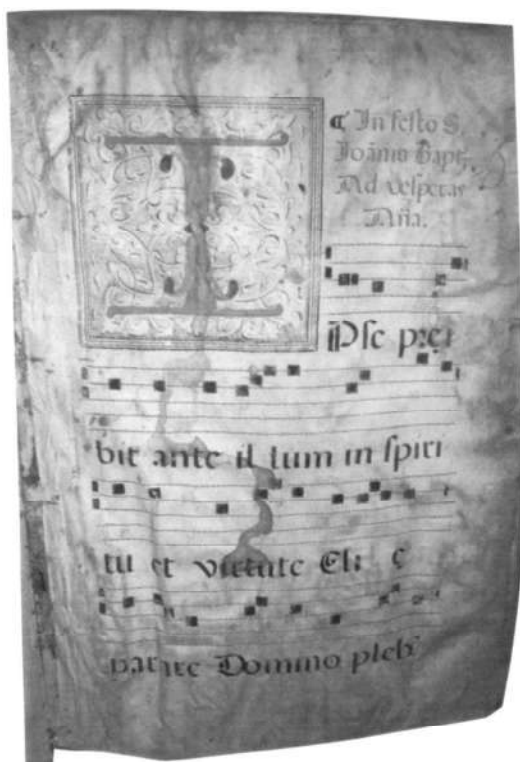 ¶ In festo S.
Joãnis Bapt.
Ad vesperas
Aña.
I Pse preí
bit ante il lum in spiri
tu et virtute Eli ę
parare Domino pleb